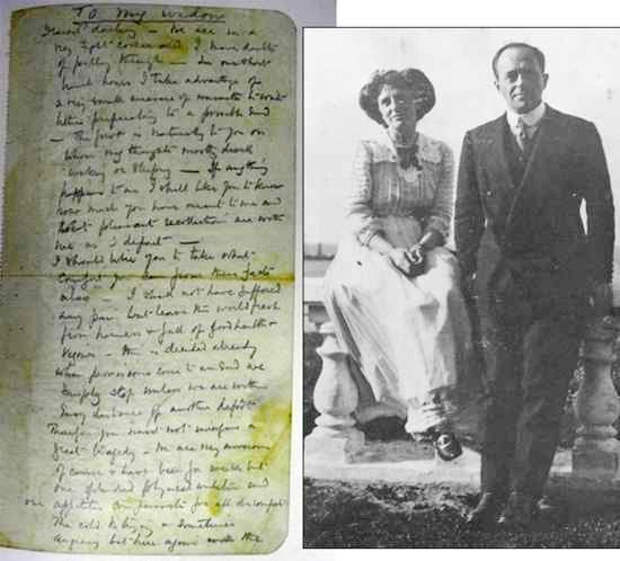 To my widow
Dearest darling – We are in a
very tight corner and I have doubts
of pulling through – In our short
lunch hours I take advantage of
a very small measure of warmth to write
letters preparatory to a possible end
– The first is naturally to you on
whom my thoughts mostly dwell
waking or sleeping – If anything
happens to me I shall like you to know
how much you have meant to me and
that pleasant recollections are with
me as I depart –
I should like you to take what
comfort you can from these facts
also – I shall not have suffered
any pain but leave the world fresh
from harness & full of good health &
vigour – this is decided already
when provisions come to an end we
simply stop we are within
easy distance of another depot
Therefore you must not imagine a
great tragedy – We are very anxious
of course & have been for weeks but
our splendid physical condition and
our appetites for all discomfort
The cold is biting & sometimes
angering but here again the